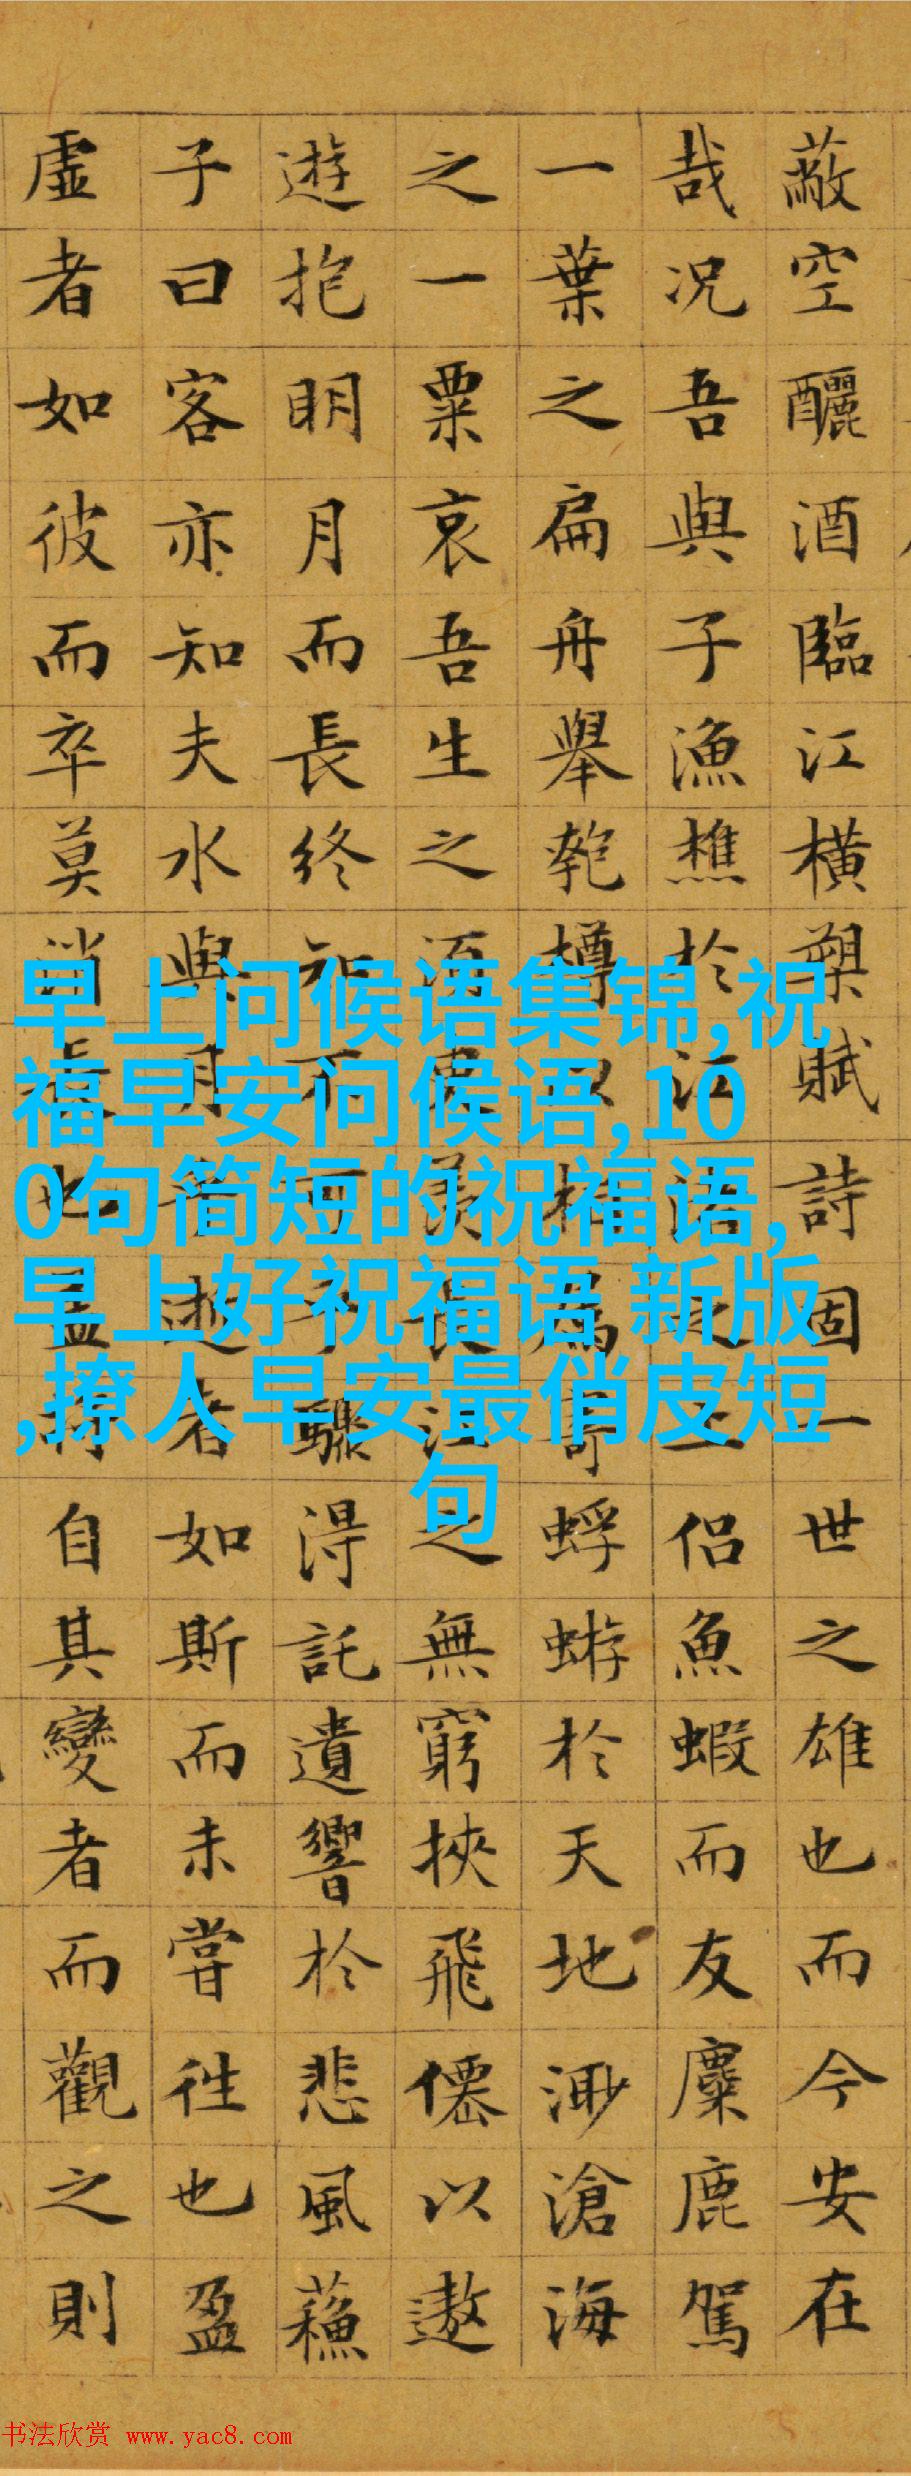 蔽空釃酒臨江橫槊賦詩固一世之雄也而今安在
哉况吾與子漁樵於江渚之上侶魚蝦而友麋鹿駕
一葉之扁舟舉匏樽以相屬寄蜉蝣於天地渺滄海
之一粟哀吾生之須臾羨長江之無窮挾飛僊以遨
遊抱明月而長終知不可乎驟得託遺響於悲風蘇
子曰客亦知夫水與月乎逝者如斯而未嘗往也盈
虛者如彼而卒莫消長也蓋將自其變者而觀之則
早上问候语集锦,祝
福早安问候语,10
0句简短的祝福语,
早上好祝福语 新版
,撩人早安最俏皮短
句
书法欣赏 www.yac8.com